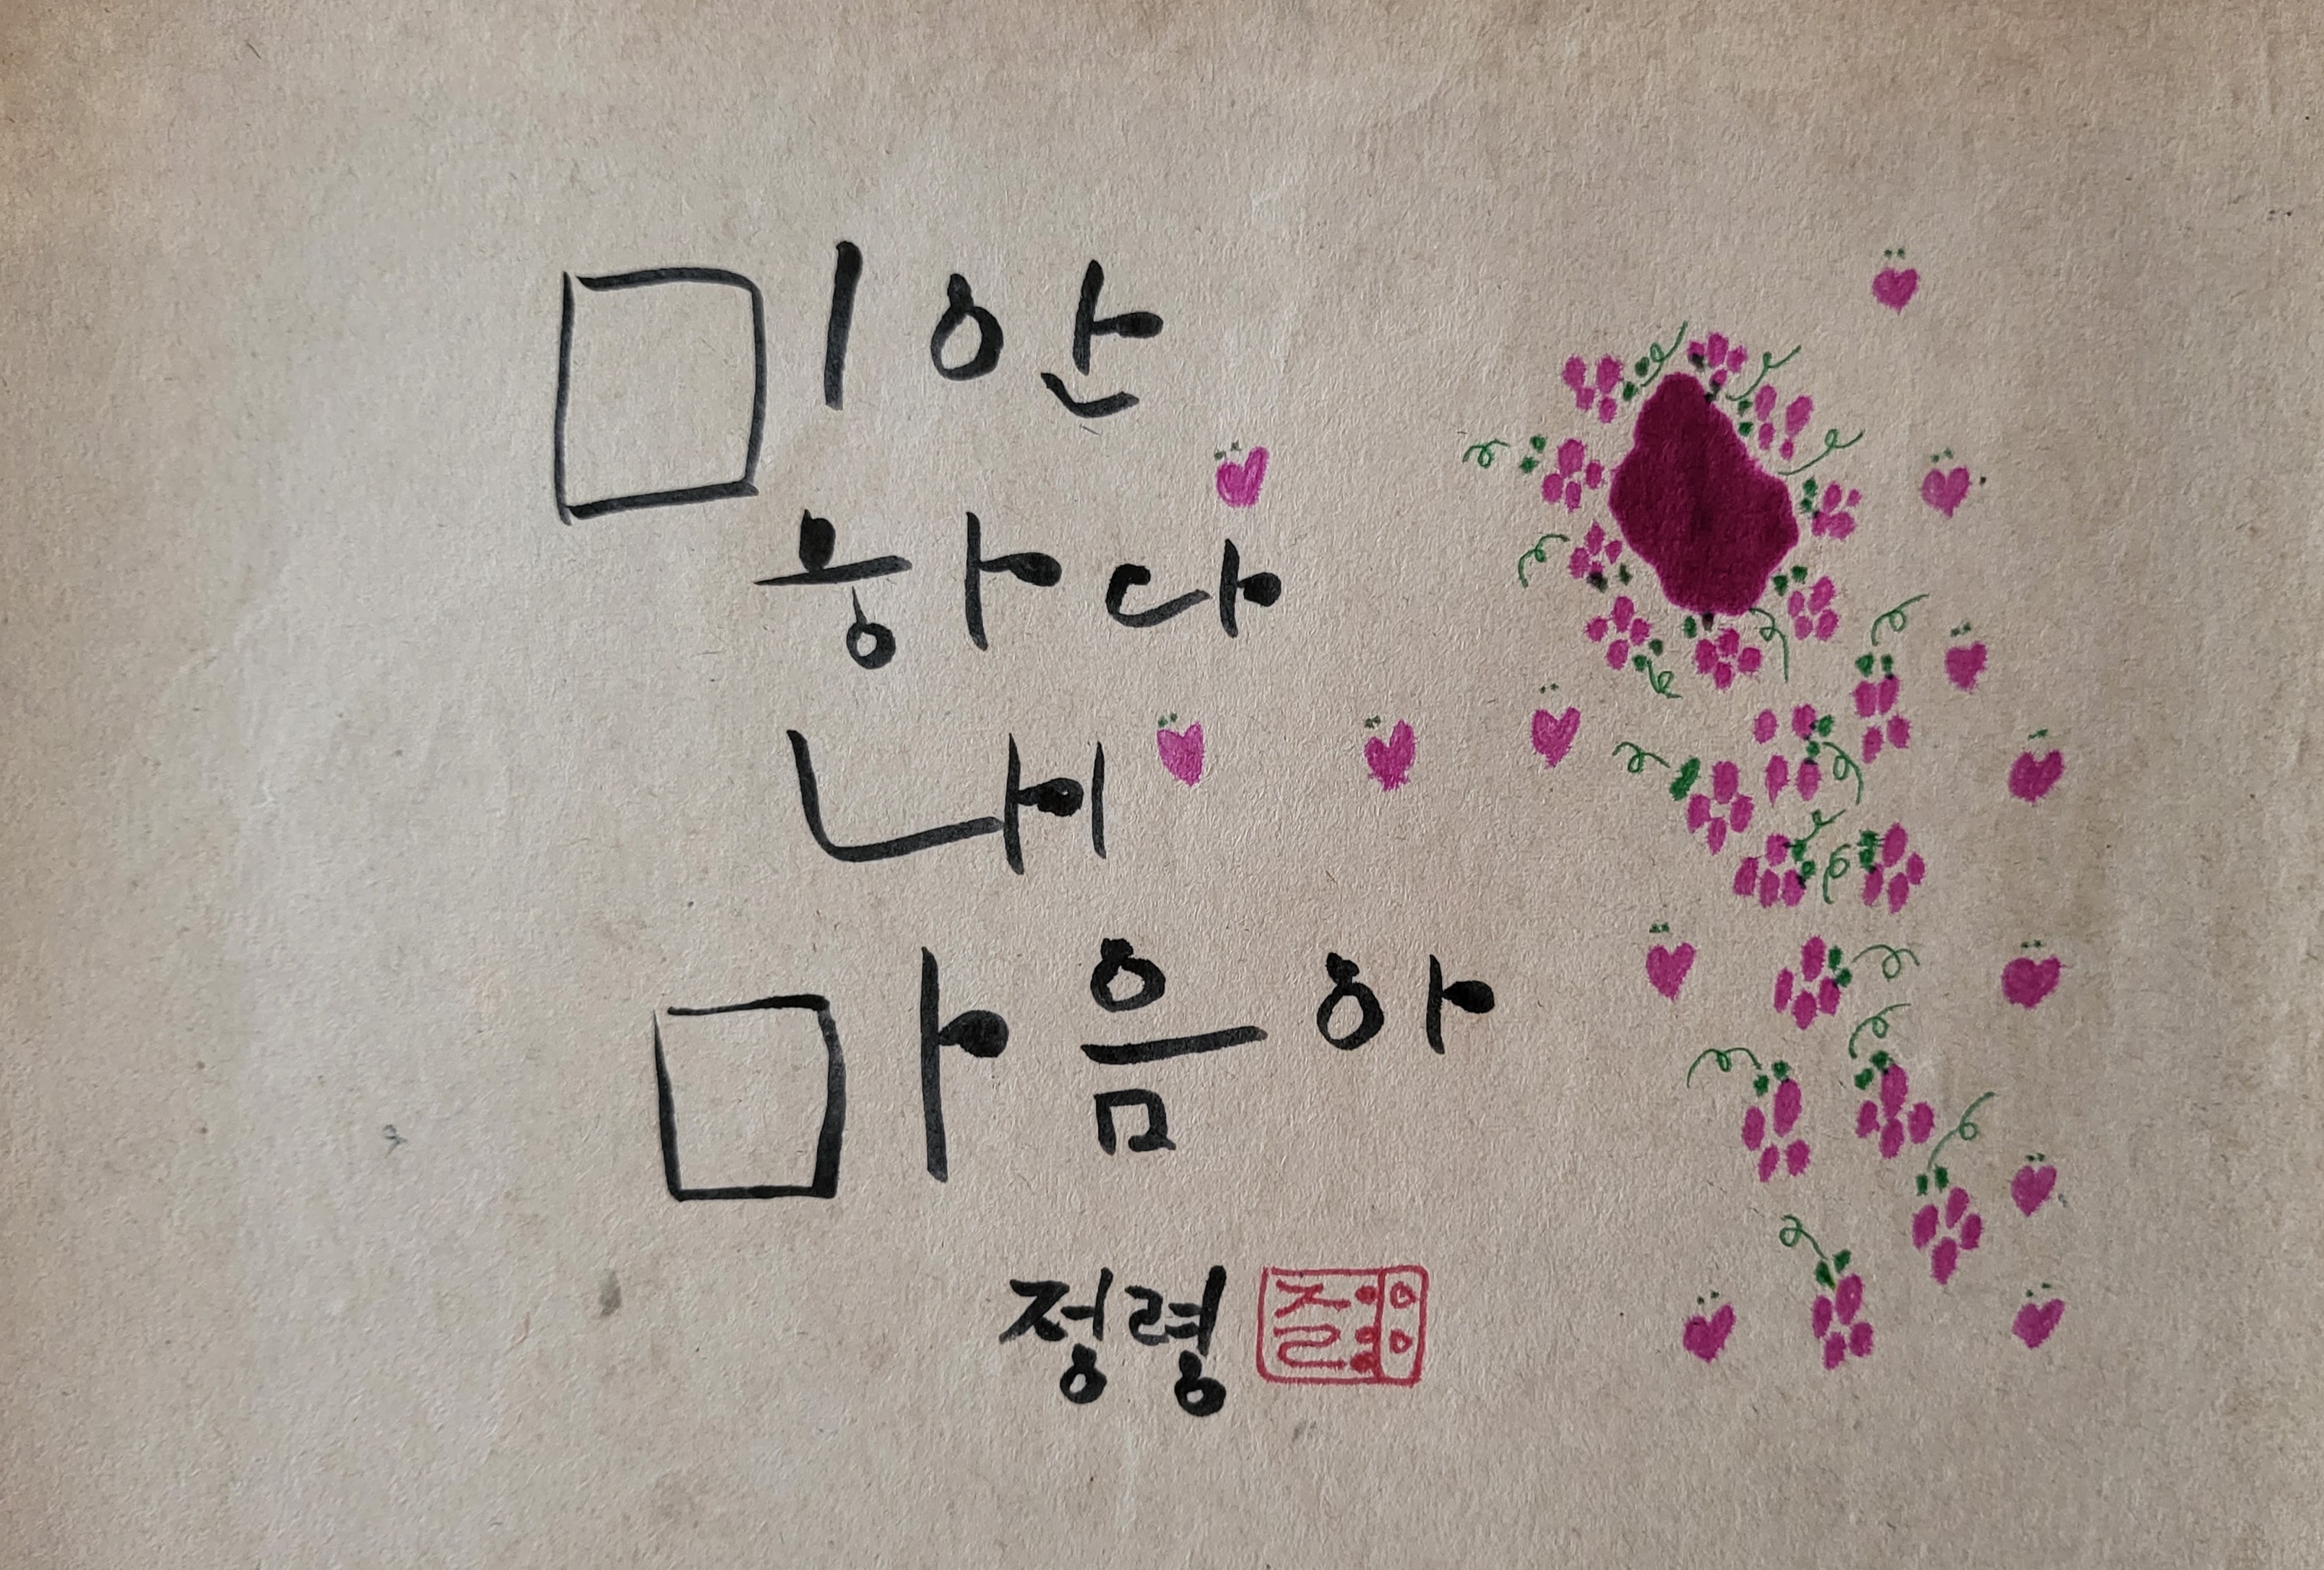 미안
하다
내
마음아
정령